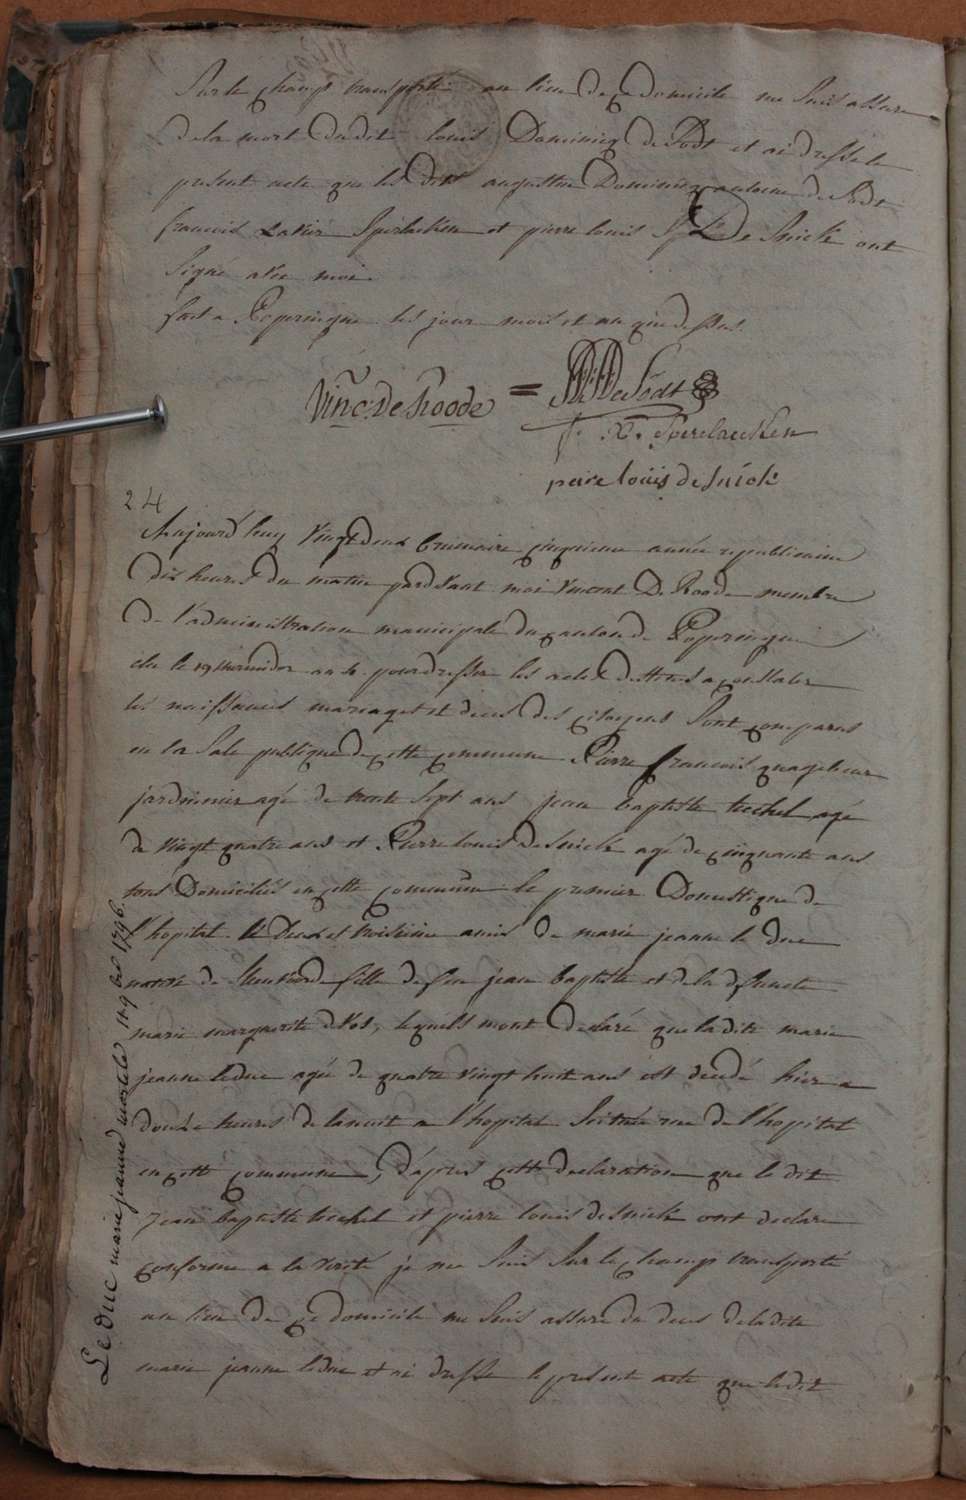 Sur le champ transporté au lieu de ce domicile me suis assure
de la mort dudit louis Dominiq de Sodt et ai dresse le
present acte que les dits augustin Dominicq antoine de Sodt
francois Xavier Sperlaecken et pierre louis De Snick ont
signé avec moi.
fait a Poperingue les jour mois et an que dessus.
Vinc: De Roode = De Sodt
f. X. Sperelaecken
peire louis de snick
24
Aujourd'huy vingt deux brumaire cinquieme année republicaine
dix heures du matin pardevant moi Vincent De Roode membre
de l'administration municipale du canton de Poperingue
elu le 19 thermidor an 4. pour dresser les actes destines a constater
les naissances mariages et deces des citoyens sont comparus
en la sale publique de cette commune Pierre francois quaghebeur
jardinier agé de trente sept ans jean baptiste hechel agé
de vingt quatre ans et Pierre louis de snick agé de cinquante ans
tous Domiciliés en cette commune le premier Domestique de
l'hopital le deux et troisieme amis de marie jeanne le duc
native de fille de feu jean baptiste et de la defuncte
marie marguerite d Vos, lequels m'ont declaré que la dite marie
jeanne leduc agée de quatre vingt huit ans est decedé hier a
douze heures de la nuit a l'hopital situeé rue de l'hopital
en cette commune, d'apres cette declaration que le dit
Jean baptiste hechel et pierre louis de snick ont declare
conforme a la verité je me suis sur le champ transporté
au lieu de ce domicile me suis assure du deces de la dite
marie jeanne leduc et ai dresse le present acte que le dit
Le duc marie jeanne morte le 11 9bre 1796.